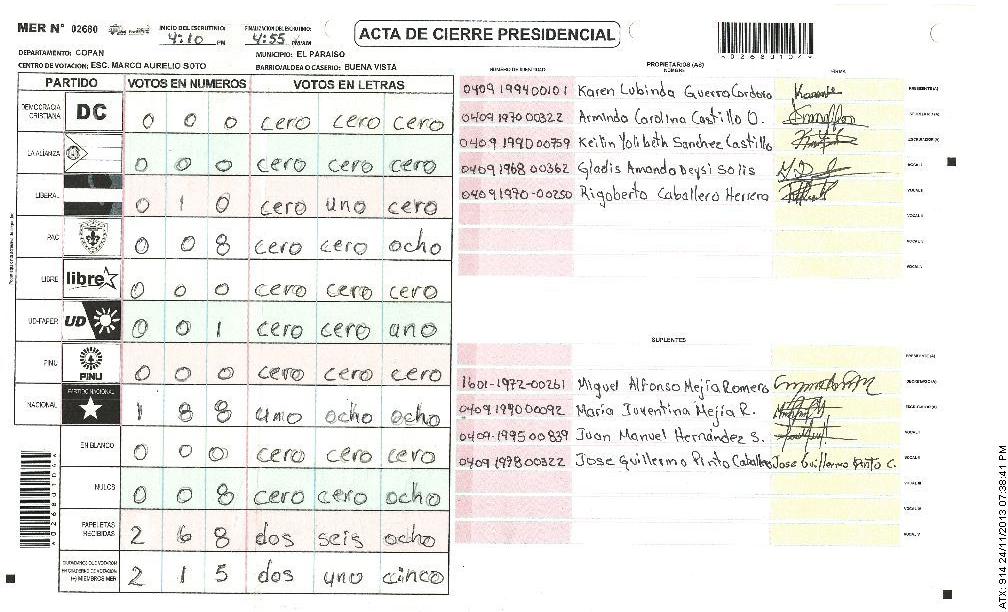 MER N° 02680 INICIO DEL ESCRUTINIO: 4:10 PM FINALIZACION DEL ESCRUTINIO: 4:55 PM/AM
ACTA DE CIERRE PRESIDENCIAL
DEPARTAMENTO: COPAN MUNICIPIO: EL PARAISO
CENTRO DE VOTACION: ESC. MARCO AURELIO SOTO BARRIO/ALDEA O CASERIO: BUENA VISTA
PARTIDO VOTOS EN NUMEROS VOTOS EN LETRAS
DEMOCRACIA CRISTIANA DC 0 0 0 cero cero cero
LA ALIANZA 0 0 0 cero cero cero
LIBERAL 0 1 0 cero uno cero
PAC 0 0 8 cero cero ocho
LIBRE libre 0 0 0 cero cero cero
UD-FAPER UD 0 0 1 cero cero uno
PINU PINU 0 0 0 cero cero cero
NACIONAL PARTIDO NACIONAL 1 8 8 uno ocho ocho
EN BLANCO 0 0 0 cero cero cero
NULOS 0 0 8 cero cero ocho
PAPELETAS RECIBIDAS 2 6 8 dos seis ocho
CIUDADANOS QUE VOTARON EN CUADERNO DE VOTACION (+) MIEMBROS MER 2 1 5 dos uno cinco
PROPIETARIOS (AS)
NUMERO DE IDENTIDAD NOMBRE FIRMA
0409 1994 00101 Karen Lubinda Guerra Cordova PRESIDENTE(A)
0409 1970 00322 Arminda Carolina Castillo O. SECRETARIO(A)
0409 1990 00759 Keitin Yolibeth Sanchez Castillo ESCRUTADOR(A)
0409 1968 00362 Gladis Amanda Deysi Solis VOCAL I
0409 1970-00250 Rigoberto Caballero Herrera VOCAL II
VOCAL III
VOCAL IV
VOCAL V
SUPLENTES
PRESIDENTE(A)
1601-1972-00261 Miguel Alfonso Mejía Romero SECRETARIO(A)
0409 1990 00092 María Juventina Mejía R. ESCRUTADOR(A)
0409-1995 00839 Juan Manuel Hernández S. VOCAL I
0409 1978 00322 Jose Guillermo Pinto Caballero Jose Guillermo Pinto C. VOCAL II
VOCAL III
VOCAL IV
VOCAL V
ATX: 914 24/11/2013 07:38:41 PM